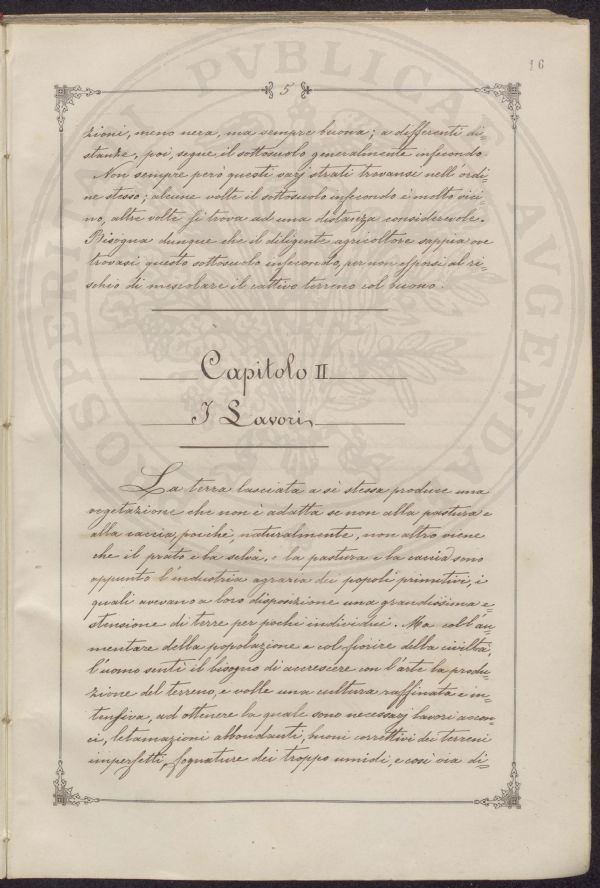 16
5
zioni, meno nera, ma sempre buona; a differenti di=
stanze, poi, segue il sottosuolo generalmente infecondo.
Non sempre però questi varj strati trovansi nell'ordi=
ne stesso; alcune volte il sottosuolo infecondo è molto vici=
no, altre volte si trova ad una distanza considerevole.
Bisogna dunque che il diligente agricoltore sappia ove
trovasi questo sottosuolo infecondo, per non esporsi al ri=
schio di mescolare il cattivo terreno col buono.
Capitolo II
I Lavori
La terra lasciata a sè stessa produce una
vegetazione che non è adatta se non alla pastura e
alla caccia, poichè, naturalmente, non altro viene
che il prato e la selva, e la pastura e la caccia sono
appunto l'industria agraria dei popoli primitivi, i
quali avevano a loro disposizione una grandissima e=
stensione di terre per pochi individui. Ma coll'au=
mentare della popolazione e col fiorire della civiltà,
l'uomo sentì il bisogno di accrescere con l'arte la produ=
zione del terreno, e volle una cultura raffinata e in=
tensiva, ad ottenere la quale sono necessarj lavori accon=
ci, letamazioni abbondanti, buoni correttivi dei terreni
imperfetti, fognature dei troppo umidi, e così via di=
PVBLICAE AVGENDAE PROSPERITATI